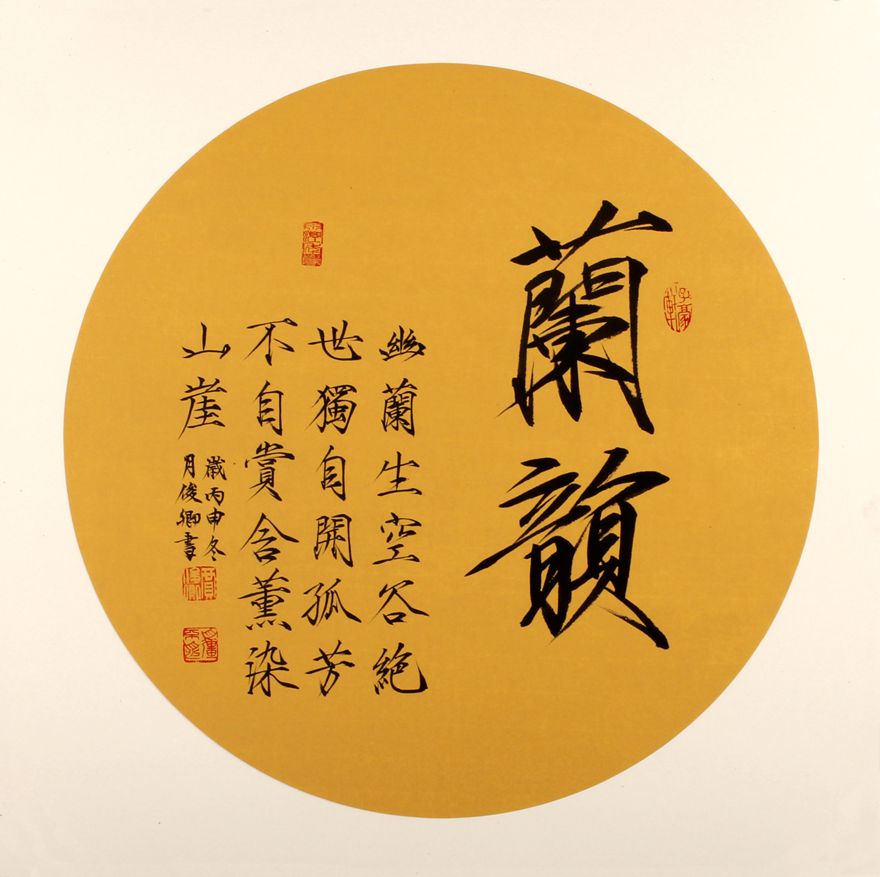 蘭韻
幽蘭生空谷絕
世獨自開孤芳
不自賞含薰染
山崖
歲丙申冬
月俊卿書